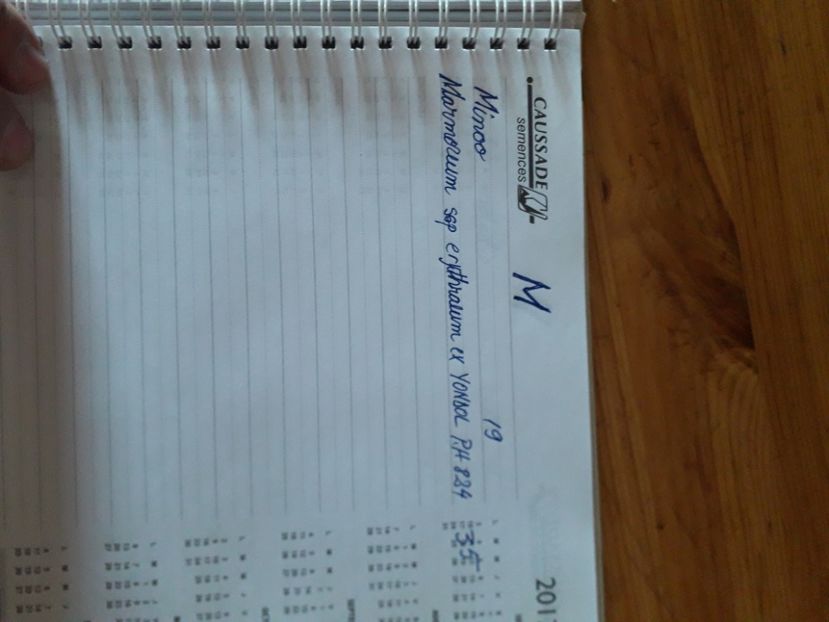 CAUSSADE
semences
M
Minoo 19
Marmoreum ssp erythraeum ex YONDOL P.H 824 35
201